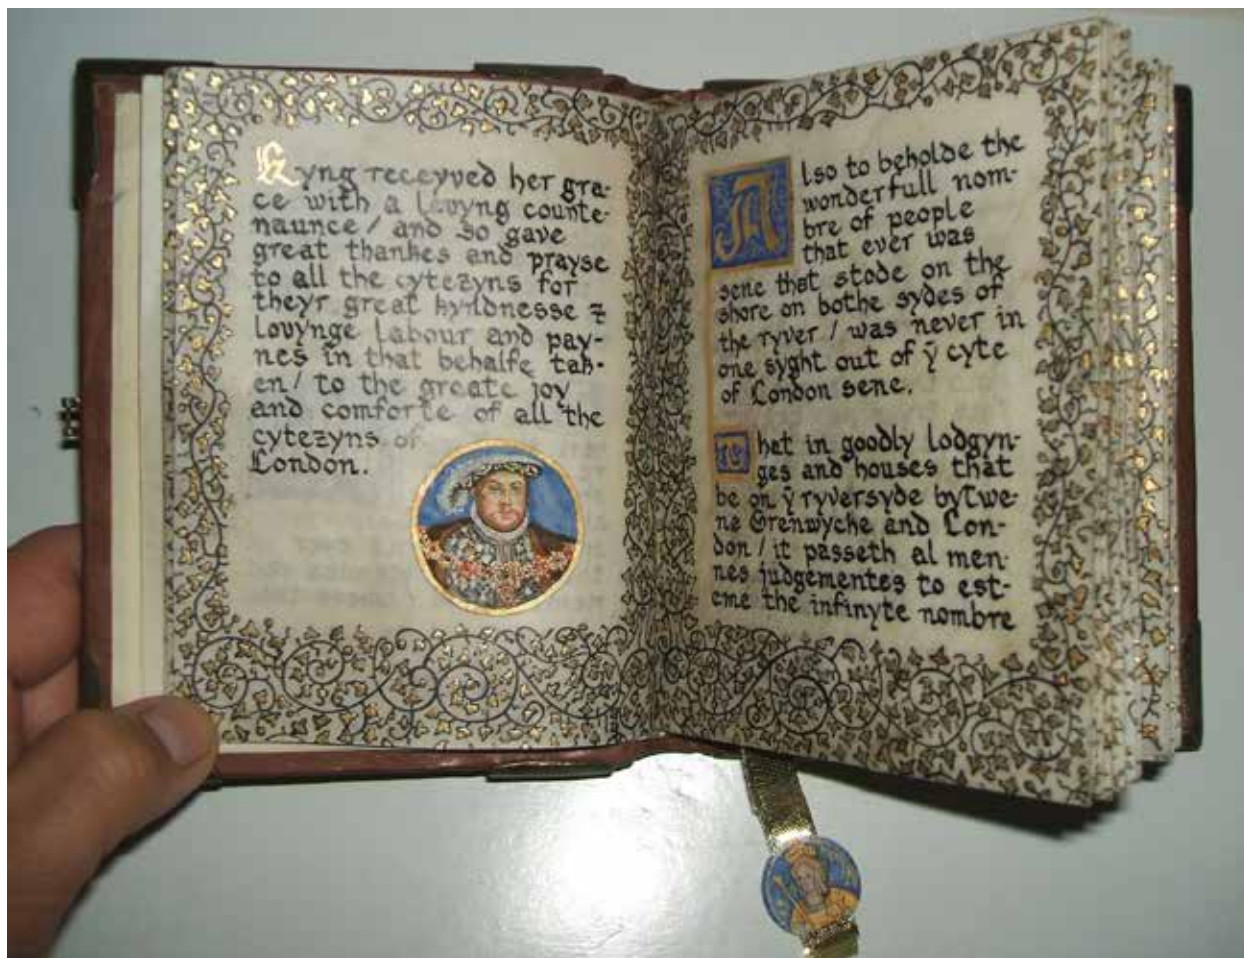 Kyng receyved her gra-
ce with a lovyng counte-
naunce / and so gave
great thankes and prayse
to all the cytezyns for
theyr great kyndnesse ⁊
lovynge labour and pay-
nes in that behalfe tak-
en / to the greate joy
and comforte of all the
cytezyns of
London.
Also to beholde the
wonderfull nom-
bre of people
that ever was
sene that stode on the
shore on bothe sydes of
the ryver / was never in
one syght out of ȳ cyte
of London sene.
That in goodly lodgyn-
ges and houses that
be on ȳ ryversyde bytwe-
ne Grenwyche and Lon-
don / it passeth al men-
nes judgementes to est-
eme the infinyte nombre